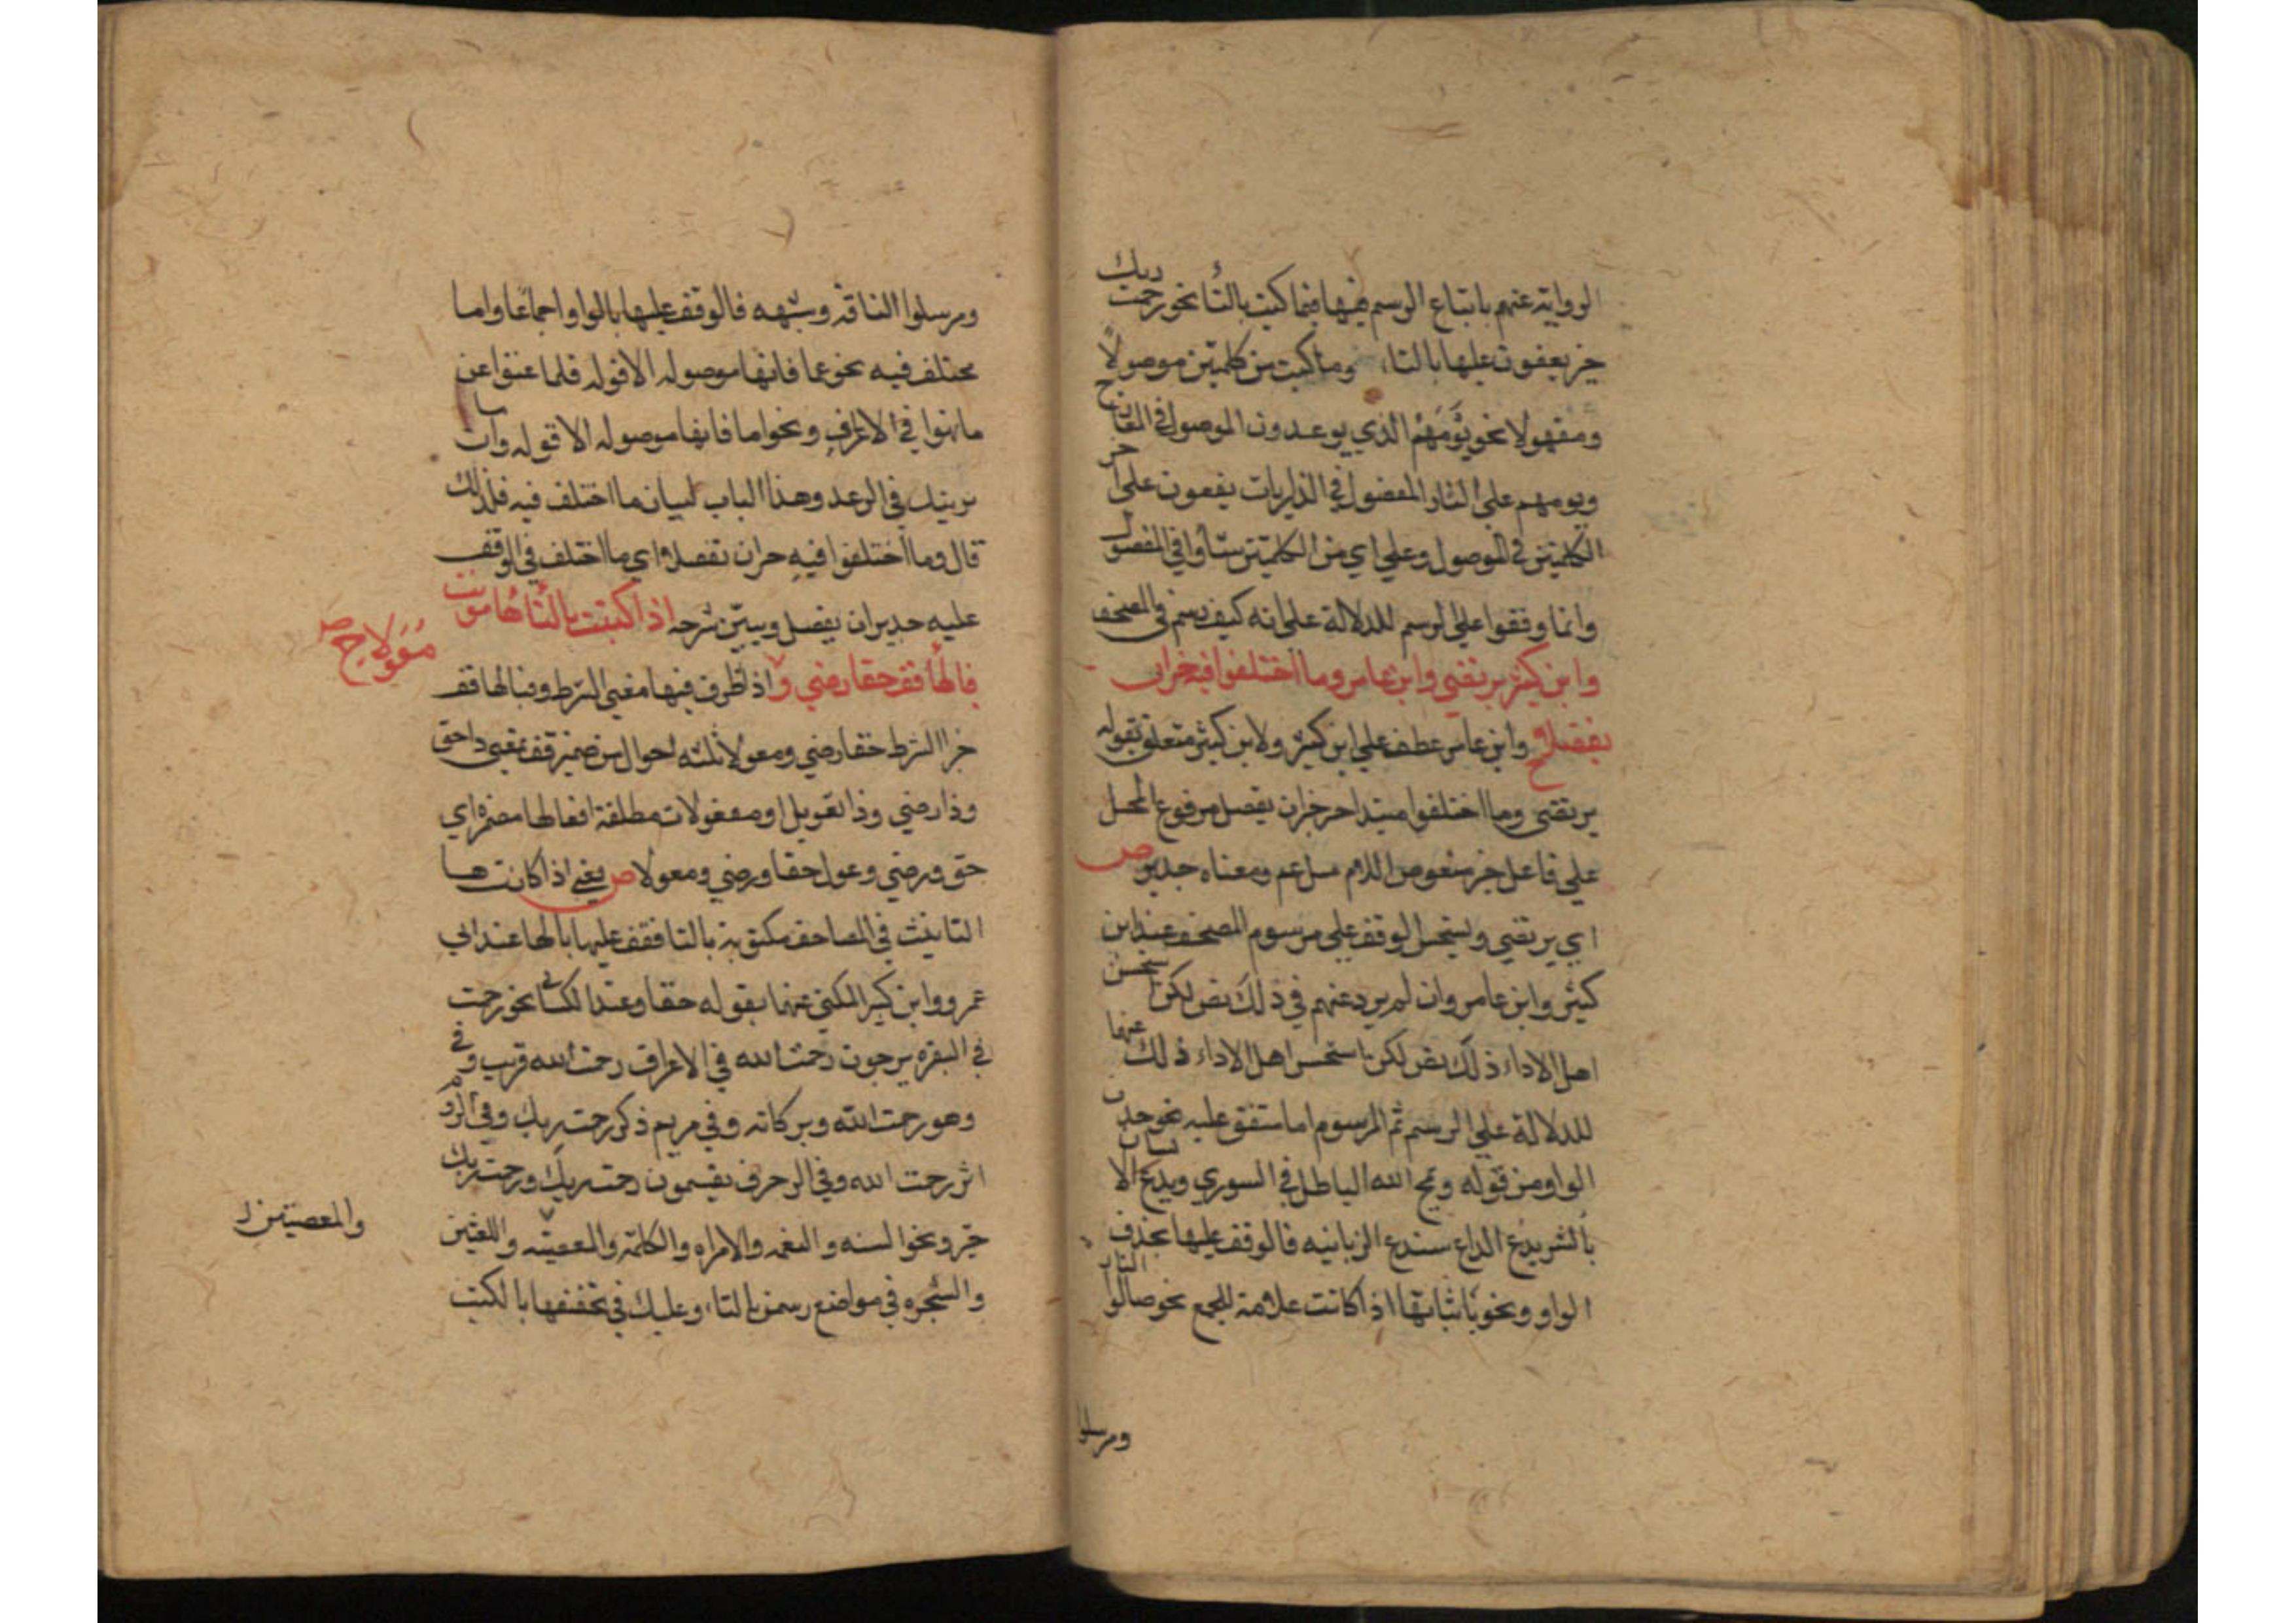 الرواية عنهم باتباع الرسم فيها فيما كتبت بالتاء نحو رحمت ربك
خير يقفون عليها بالتاء وما كتبت من كلمتين موصولا
ومفهولا نحو يومهم الذي يوعدون الموصول في المعارج
ويومهم على النار المفصول في الذاريات يقفون على اخر
الكلمتين في الموصول وعلى اي من الكلمتين شاوا في المفصول
وانما وقفوا على الرسم للدلالة على انه كيف رسم في المصحف
وابن كثير يرتضى وابن عامر وما اختلفوا فيه حر ان
يفصلا وابن عامر عطف على ابن كثير ولابن كثير متعلق بقوله
يرتضى وما اختلفوا مبتدا حر خبر ان يفصل مرفوع المحل
على فاعل حر منقوص اللام ومعناه جدير ص
اي يرتضى ويستحسن الوقف على مرسوم المصحف عند ابن
كثير وابن عامر وان لم يرد عنهم في ذلك نص لكن استحسن
اهل الاداء ذلك نص لكن استحسن اهل الاداء ذلك عنهما
للدلالة على الرسم ثم المرسوم اما متفق عليه نحو حذف
الواو من قوله ويمح الله الباطل في الشوري ويدع الانسان
بالشر يدع الداع سندع الزبانيه فالوقف عليها بحذف
الواو ونحو باثباتها اذا كانت علامة للجمع نحو صالوا النار
ومرسلوا
ومرسلوا الناقة وشبهه فالوقف عليها بالواو اجماعا واما
مختلف فيه نحو عما فانها موصوله الا قوله فلما عتوا عن
ما نهوا في الاعراف ونحو اما فانها موصوله الا قوله وان ما
نرينك في الرعد وهذا الباب لبيان ما اختلف فيه فلذلك
قال وما اختلفوا فيه حر ان تفصلا اي ما اختلف في الوقف
عليه جدير ان يفصل ويبين شرحه اذا كتبت بالتاء هاء مونث
فبالهاء قف حقا رضي و اذا ظرف فيها معنى الشرط وفبالها قف
معولا ح ص
جزا الشرط حقا رضي ومعولا ثلثه احوال من ضمير قف بمعنى ذا حق
وذا رضي وذا تعويل او مفعولات مطلقة افعالها مضمره اي
حق ورضي وعول حقا ورضي ومعولا ص يعني اذا كانت ها
التانيث في المصاحف مكتوبة بالتا فقف عليها بالها عند ابي
عمرو وابن كثير المكنى عنهما بقوله حقا وعند الكسائي نحو رحمت
في البقره يرجون رحمت الله في الاعراف رحمت الله قريب وفي
وهو رحمت الله وبركاته وفي مريم ذكر رحمت ربك وفي الروم
اثر رحمت الله وفي الزخرف يقسمون رحمت ربك ورحمت ربك
خير ونحو السنه والنعمه والامراه والكلمة والمعصيه واللعنتين
والمعصيتين
والشجره في مواضع رسمن بالتاء وعليك في تحقيقها بالكتب